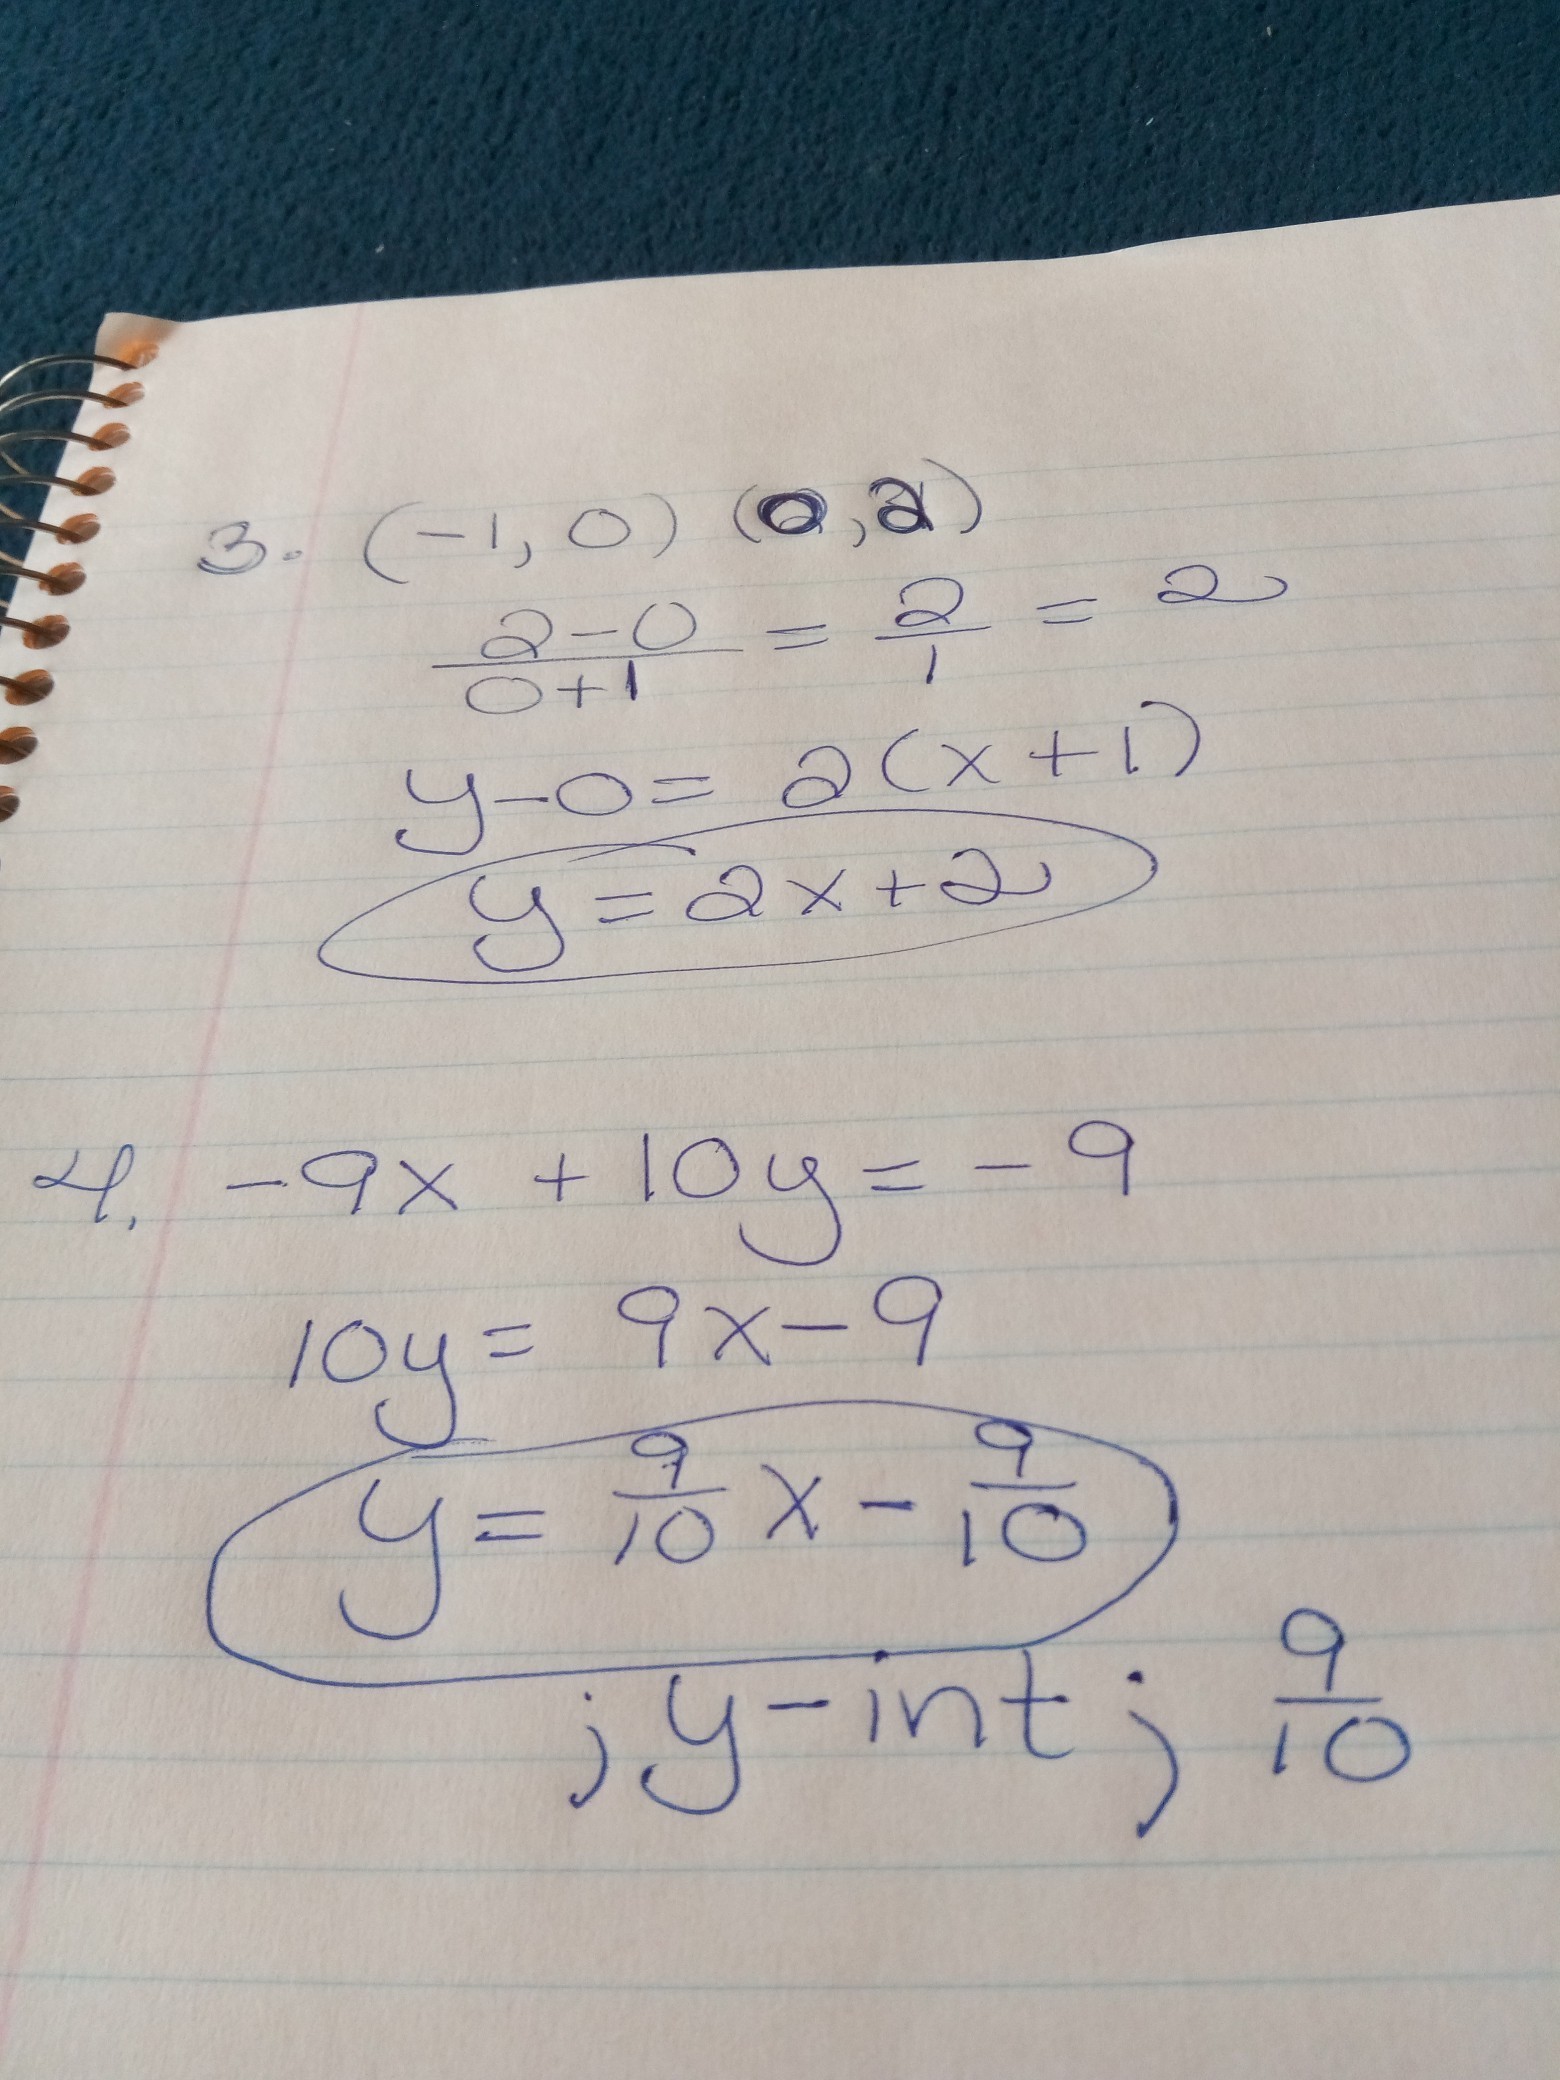 3. (-1, 0) (0, 2)
2-0/0+1 = 2/1 = 2
y-0 = 2(x+1)
y = 2x+2
4. -9x + 10y = -9
10y = 9x-9
y = 9/10 x - 9/10
; y-int ; 9/10